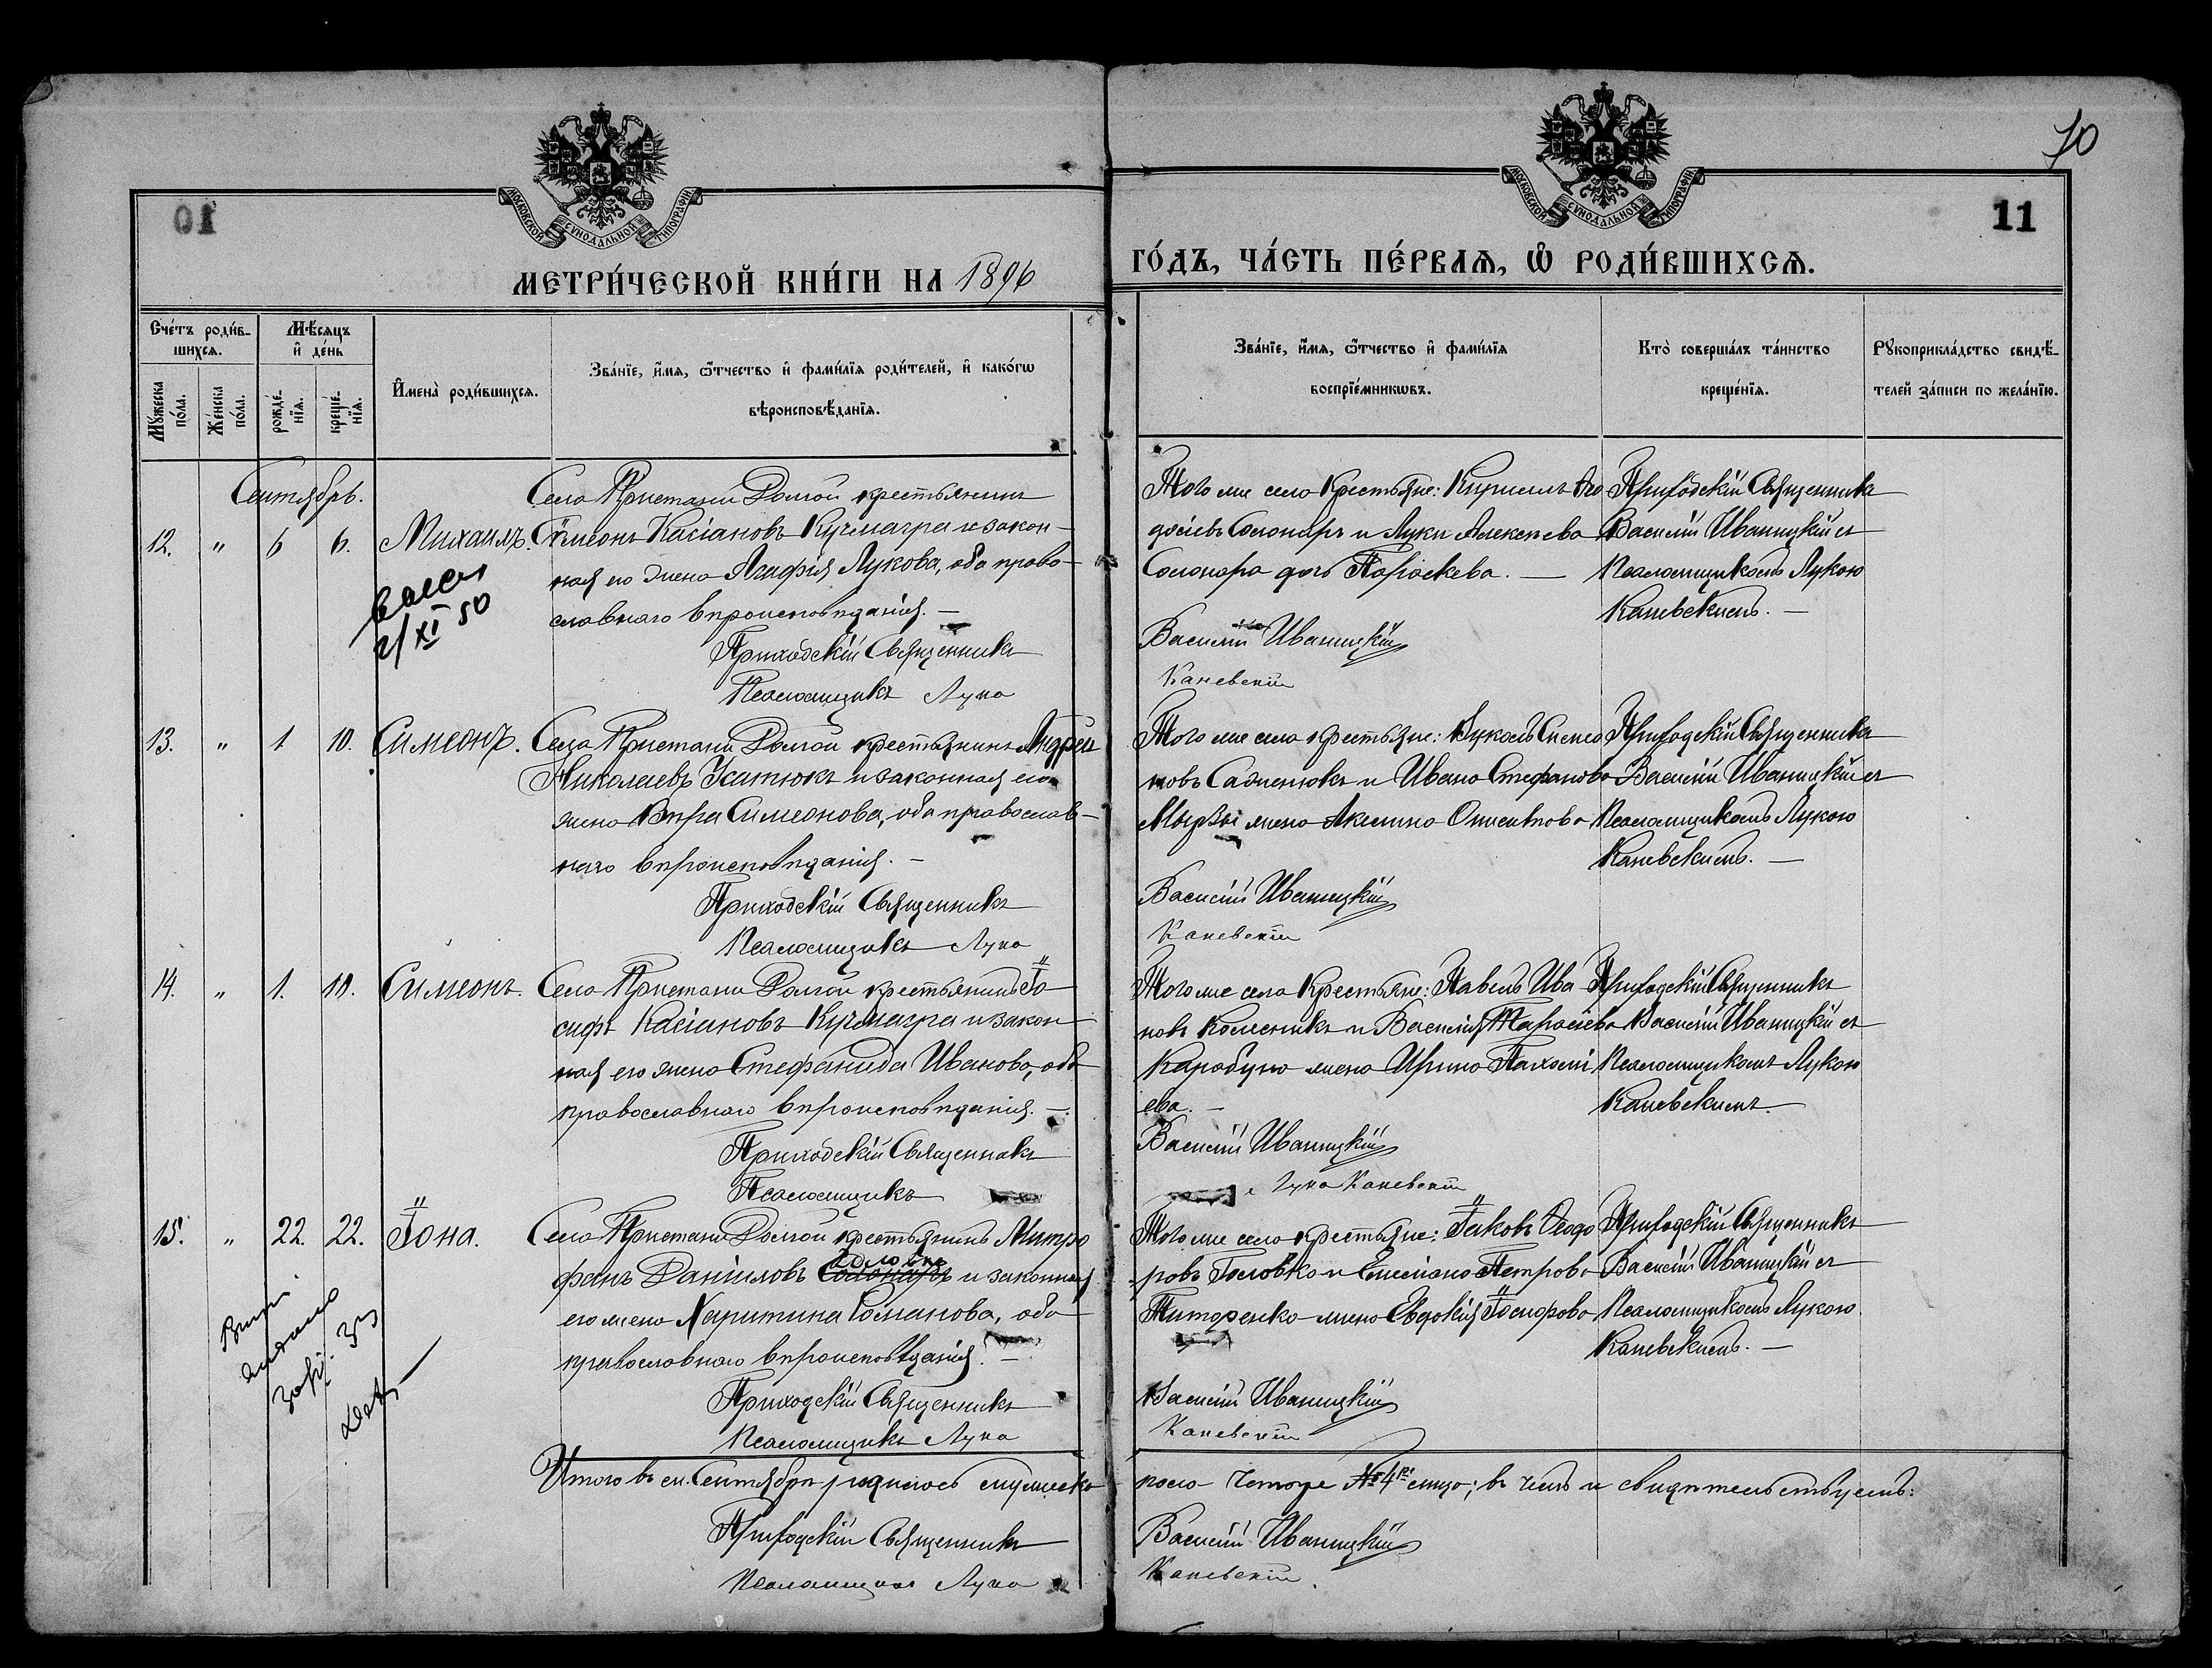 МОСКОВСКОЙ СѴНОДАЛЬНОЙ ТИПОГРАФІИ
01
МЕТРИ́ЧЕСКОЙ КНИ́ГИ НА 1896
Сче́тъ роди́в-
шихсѧ.
Мѣ́сѧцъ
и҆ де́нь
Мꙋ́жеска по́ла.
Же́нска по́ла.
рожде́-
нїѧ.
креще́-
нїѧ.
И҆мена̀ роди́вшихсѧ.
Зва́нїе, и҆́мѧ, ѻ҆́тчество и҆ фами́лїѧ роди́телей, и҆ како́гѡ
вѣроисповѣ́данїѧ.
Сентябрь.
12. " 6 6. Михаилъ.
Села Пристани Долгой крестьянинъ
Сѵмеонъ Касіановъ Кучмагра и закон-
ная его жена Агафія Лукова, оба право-
славнаго вѣроисповѣданія. —
Приходскій Священникъ
Псаломщикъ Лука
2/XI 50
13. " 1 10. Симеонъ.
Села Пристани Долгой крестьянинъ Андрей
Николаевъ Усатюкъ и законная его
жена Вѣра Симеонова, оба православ-
наго вѣроисповѣданія. —
Приходскій Священникъ
Псаломщикъ Лука
14. " 1. 10. Симеонъ.
Села Пристани Долгой крестьянинъ Іо-
сифъ Касіановъ Кучмагра и закон-
ная его жена Стефанида Иванова, оба
православнаго вѣроисповѣданія. —
Приходскій Священникъ
Псаломщикъ
15. " 22. 22. Іона.
Села Пристани Долгой крестьянинъ Митро
фанъ Даніиловъ Солонаръ и законная
его жена Харитина Романова, оба
православнаго вѣроисповѣданія. —
Приходскій Священникъ
Псаломщикъ Лука
Итого въ м. Сентябрѣ родилось мужеска
Приходскій Священникъ
Псаломщикъ Лука
МОСКОВСКОЙ СѴНОДАЛЬНОЙ ТИПОГРАФІИ
10
11
ГО́ДЪ, ЧА́СТЬ ПЕ́РВАѦ, Ѡ҆ РОДИ́ВШИХСѦ.
Зва́нїе, и҆́мѧ, ѻ҆́тчество и҆ фами́лїѧ
воспрїе́мникѡвъ.
Кто̀ соверша́лъ та́инство
креще́нїѧ.
Рꙋкоприкла́дство свидѣ́-
телей за́писи по жела́нїю.
Того же села Крестьяне: Кириллъ Ѳео
досіевъ Солонаръ и Луки Алексѣева
Солонара дочь Параскева. —
Василій Иваницкій
Каневскій
Приходскій Священникъ
Василій Иваницкій съ
Псаломщикомъ Лукою
Каневскимъ. —
Того же села крестьяне: Вуколъ Симео
новъ и Ивана Стефанова
Мырзы жена Акилина
Василій Иваницкій
Каневскій
Приходскій Священникъ
Василій Иваницкій съ
Псаломщикомъ Лукою
Каневскимъ. —
Того же села Крестьяне: Павелъ Ива
новъ Колесникъ и Василія Тарасіева
Карабуна жена Ирина Пахомі
ева. —
Василій Иваницкій
Лука Каневскій
Приходскій Священникъ
Василій Иваницкій съ
Псаломщикомъ Лукою
Каневскимъ.
Того же села крестьяне: Іаковъ Ѳеодо
ровъ Головко и Емиліана Петрова
Титаренка жена Евдокія Іосифова
Василій Иваницкій
Каневскій
Приходскій Священникъ
Василій Иваницкій съ
Псаломщикомъ Лукою
Каневскимъ. —
пола четыре № 4ре лица; въ чемъ и свидѣтельствуемъ:
Василій Иваницкій
Каневскій